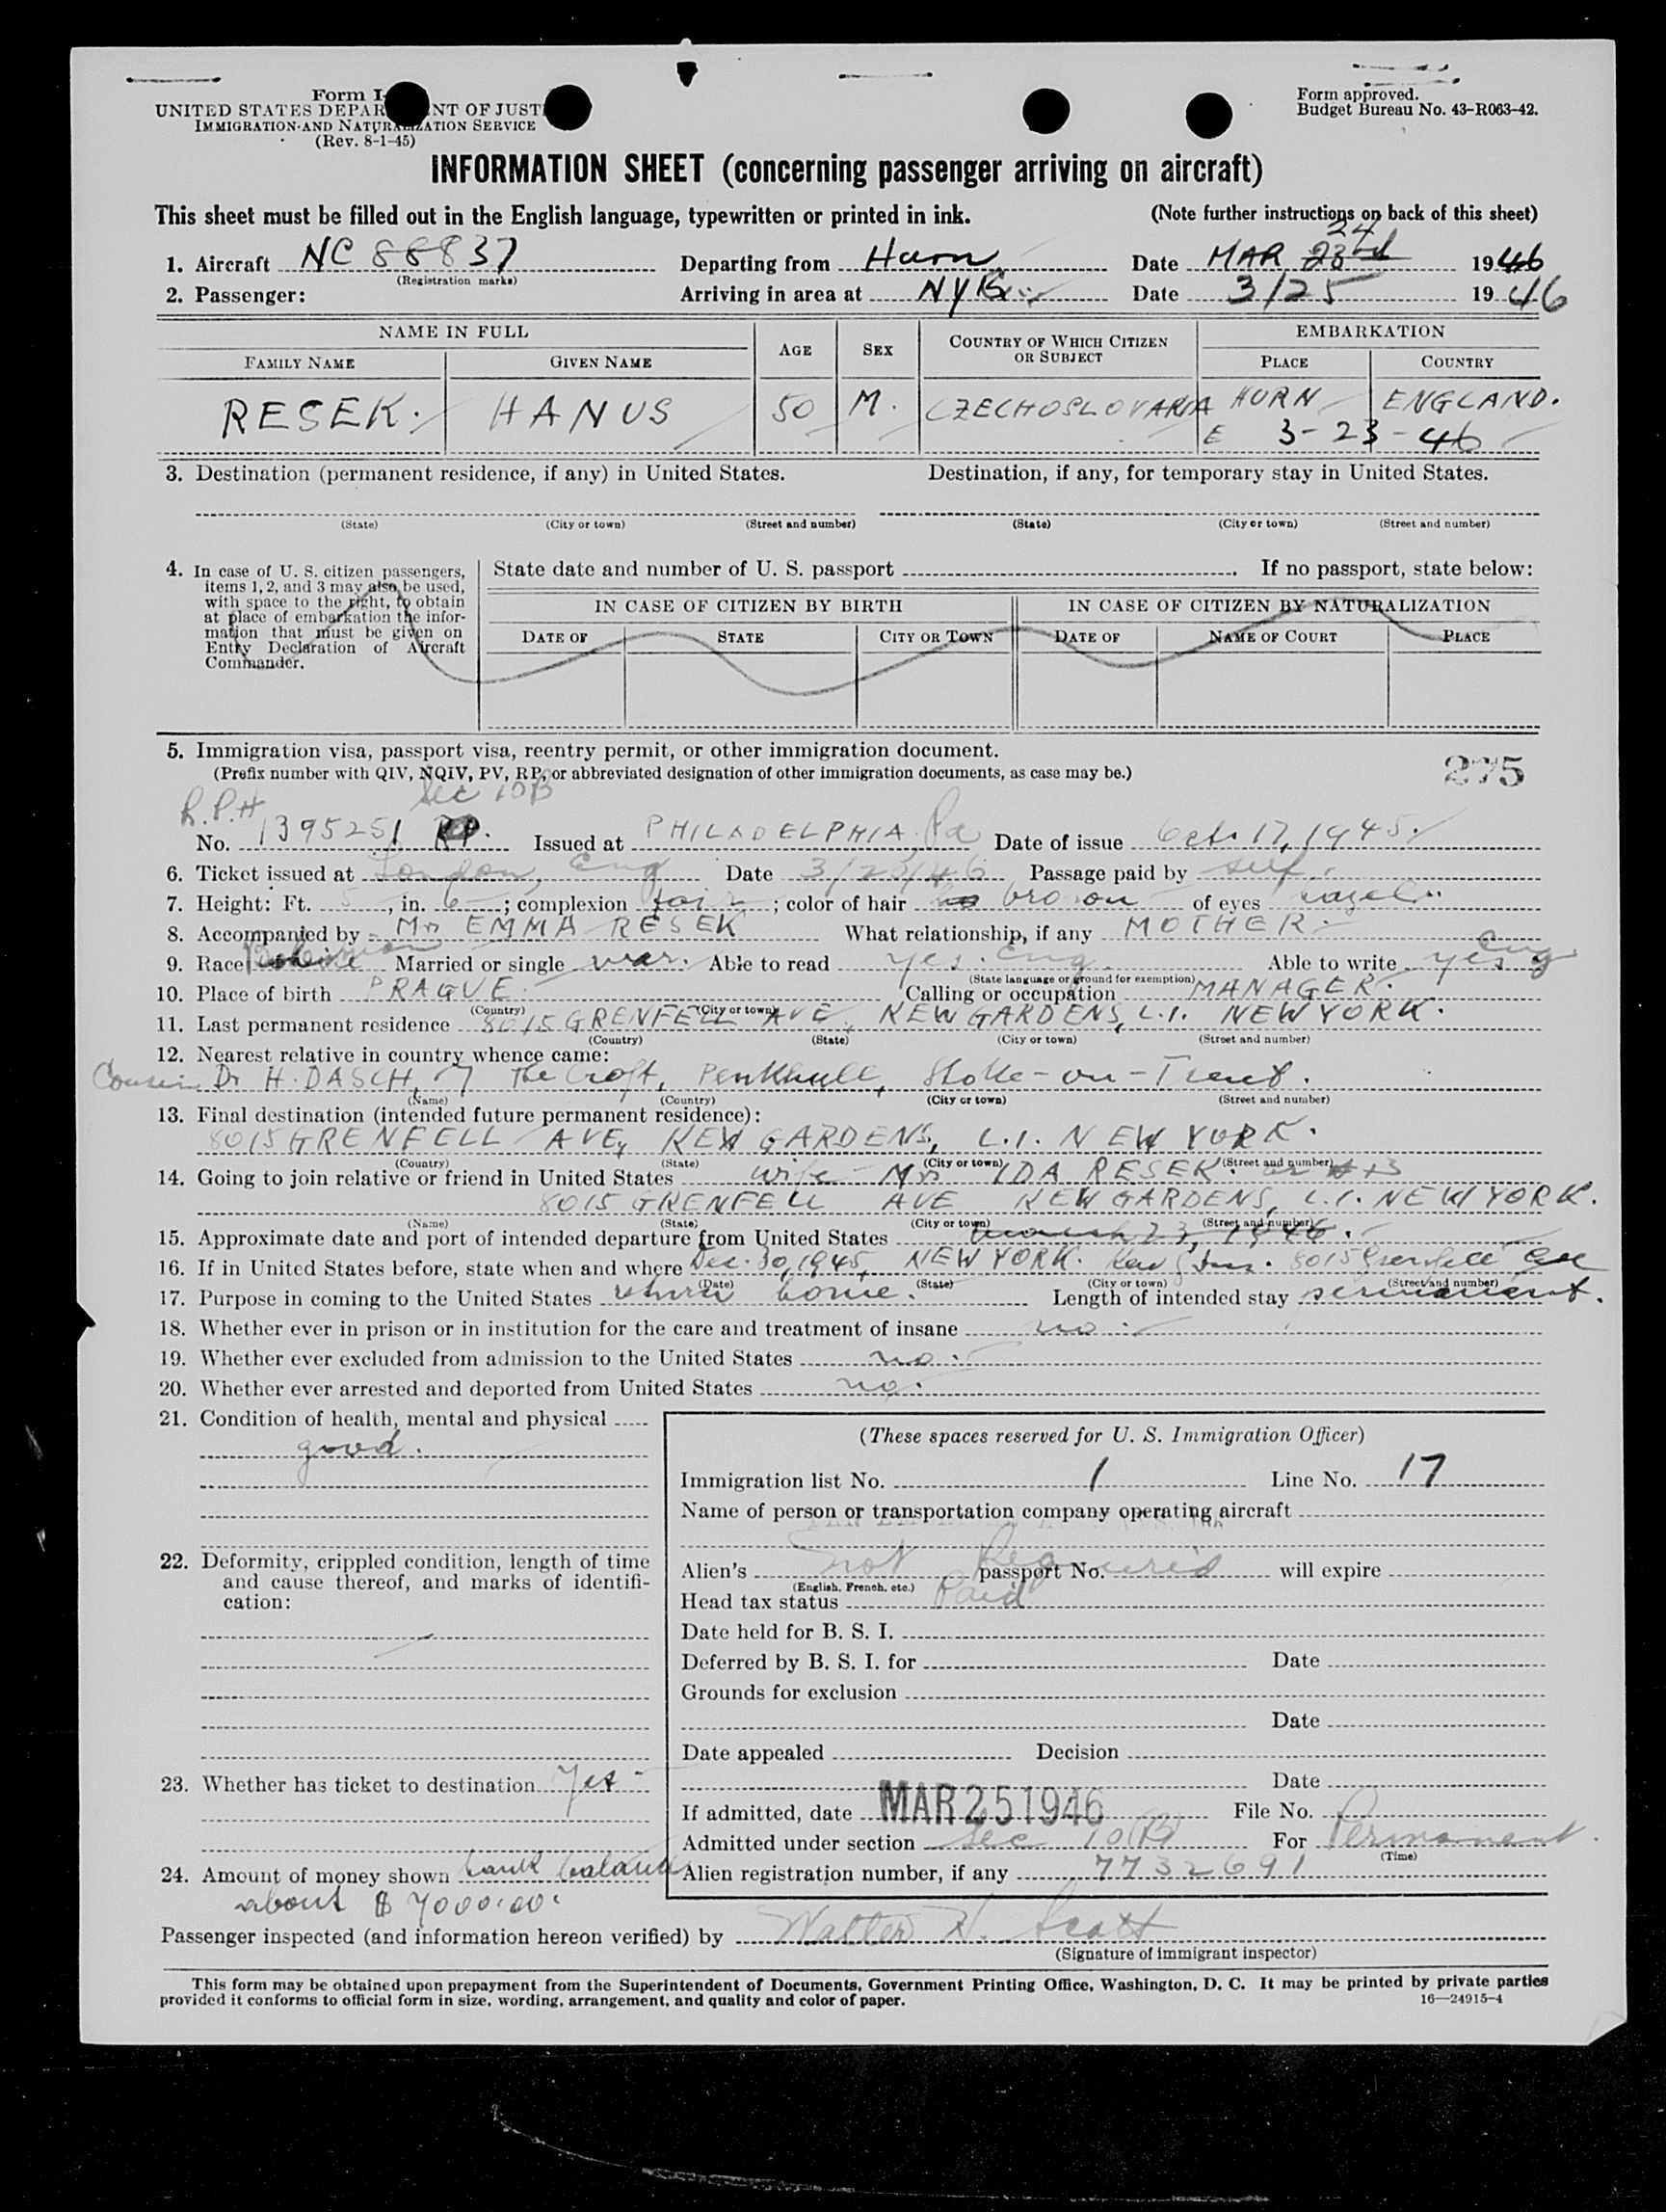 Form I-
UNITED STATES DEPAR NT OF JUST
IMMIGRATION AND NATURALIZATION SERVICE
(Rev. 8-1-45)
Form approved.
Budget Bureau No. 43-R063-42.
INFORMATION SHEET (concerning passenger arriving on aircraft)
This sheet must be filled out in the English language, typewritten or printed in ink. (Note further instructions on back of this sheet)
24
1. Aircraft NC 88837 Departing from Hurn Date MAR 23rd 1946
(Registration marks)
2. Passenger: Arriving in area at NY Date 3/25 1946
NAME IN FULL AGE SEX COUNTRY OF WHICH CITIZEN OR SUBJECT EMBARKATION
FAMILY NAME GIVEN NAME PLACE COUNTRY
RESEK. HANUS 50 M. CZECHOSLOVAKIA HURN ENGLAND.
E 3-23-46
3. Destination (permanent residence, if any) in United States. Destination, if any, for temporary stay in United States.
(State) (City or town) (Street and number) (State) (City or town) (Street and number)
4. In case of U. S. citizen passengers, items 1, 2, and 3 may also be used, with space to the right, to obtain at place of embarkation the information that must be given on Entry Declaration of Aircraft Commander.
State date and number of U. S. passport . If no passport, state below:
IN CASE OF CITIZEN BY BIRTH IN CASE OF CITIZEN BY NATURALIZATION
DATE OF STATE CITY OR TOWN DATE OF NAME OF COURT PLACE
5. Immigration visa, passport visa, reentry permit, or other immigration document.
(Prefix number with QIV, NQIV, PV, RP, or abbreviated designation of other immigration documents, as case may be.)
275
R.P.# Sec 10B
No. 1395251 RP. Issued at PHILADELPHIA, Pa Date of issue Oct. 17, 1945.
6. Ticket issued at London, Eng Date 3/23/46 Passage paid by self.
7. Height: Ft. 5, in. 6; complexion fair; color of hair brown of eyes hazel
8. Accompanied by Mrs EMMA RESEK What relationship, if any MOTHER.
9. Race Bohemian Married or single mar. Able to read yes. Eng. Able to write yes Eng
(State language or ground for exemption)
10. Place of birth PRAGUE. Calling or occupation MANAGER.
(Country) (City or town)
11. Last permanent residence 8015 GRENFELL AVE, KEW GARDENS, L.I. NEW YORK.
(Country) (State) (City or town) (Street and number)
12. Nearest relative in country whence came:
Cousin Dr H. DASCH, 7 The Croft, Penkhull, Stoke-on-Trent.
(Name) (Country) (City or town) (Street and number)
13. Final destination (intended future permanent residence):
8015 GRENFELL AVE, KEW GARDENS, L.I. NEW YORK.
(Country) (State) (City or town) (Street and number)
14. Going to join relative or friend in United States wife - Mrs IDA RESEK.
8015 GRENFELL AVE KEW GARDENS, L.I. NEW YORK.
(Name) (State) (City or town) (Street and number)
15. Approximate date and port of intended departure from United States March 23, 1946.
16. If in United States before, state when and where Dec. 30, 1945, NEW YORK. Kew Gdns. 8015 Grenfell Ave
(Date) (State) (City or town) (Street and number)
17. Purpose in coming to the United States return home. Length of intended stay permanent.
18. Whether ever in prison or in institution for the care and treatment of insane no.
19. Whether ever excluded from admission to the United States no.
20. Whether ever arrested and deported from United States no.
21. Condition of health, mental and physical
good.
22. Deformity, crippled condition, length of time and cause thereof, and marks of identification:
23. Whether has ticket to destination Yes -
24. Amount of money shown bank balance
about $ 7000.00.
(These spaces reserved for U. S. Immigration Officer)
Immigration list No. 1 Line No. 17
Name of person or transportation company operating aircraft
Alien's not passport No. Required will expire
(English, French, etc.)
Head tax status Paid
Date held for B. S. I.
Deferred by B. S. I. for Date
Grounds for exclusion
Date
Date appealed Decision
Date
If admitted, date MAR 25 1946 File No.
Admitted under section Sec 10(B) For Permanent.
(Time)
Alien registration number, if any 7732691
Passenger inspected (and information hereon verified) by Walter H. Scott
(Signature of immigrant inspector)
This form may be obtained upon prepayment from the Superintendent of Documents, Government Printing Office, Washington, D. C. It may be printed by private parties
provided it conforms to official form in size, wording, arrangement, and quality and color of paper.
16—24915-4